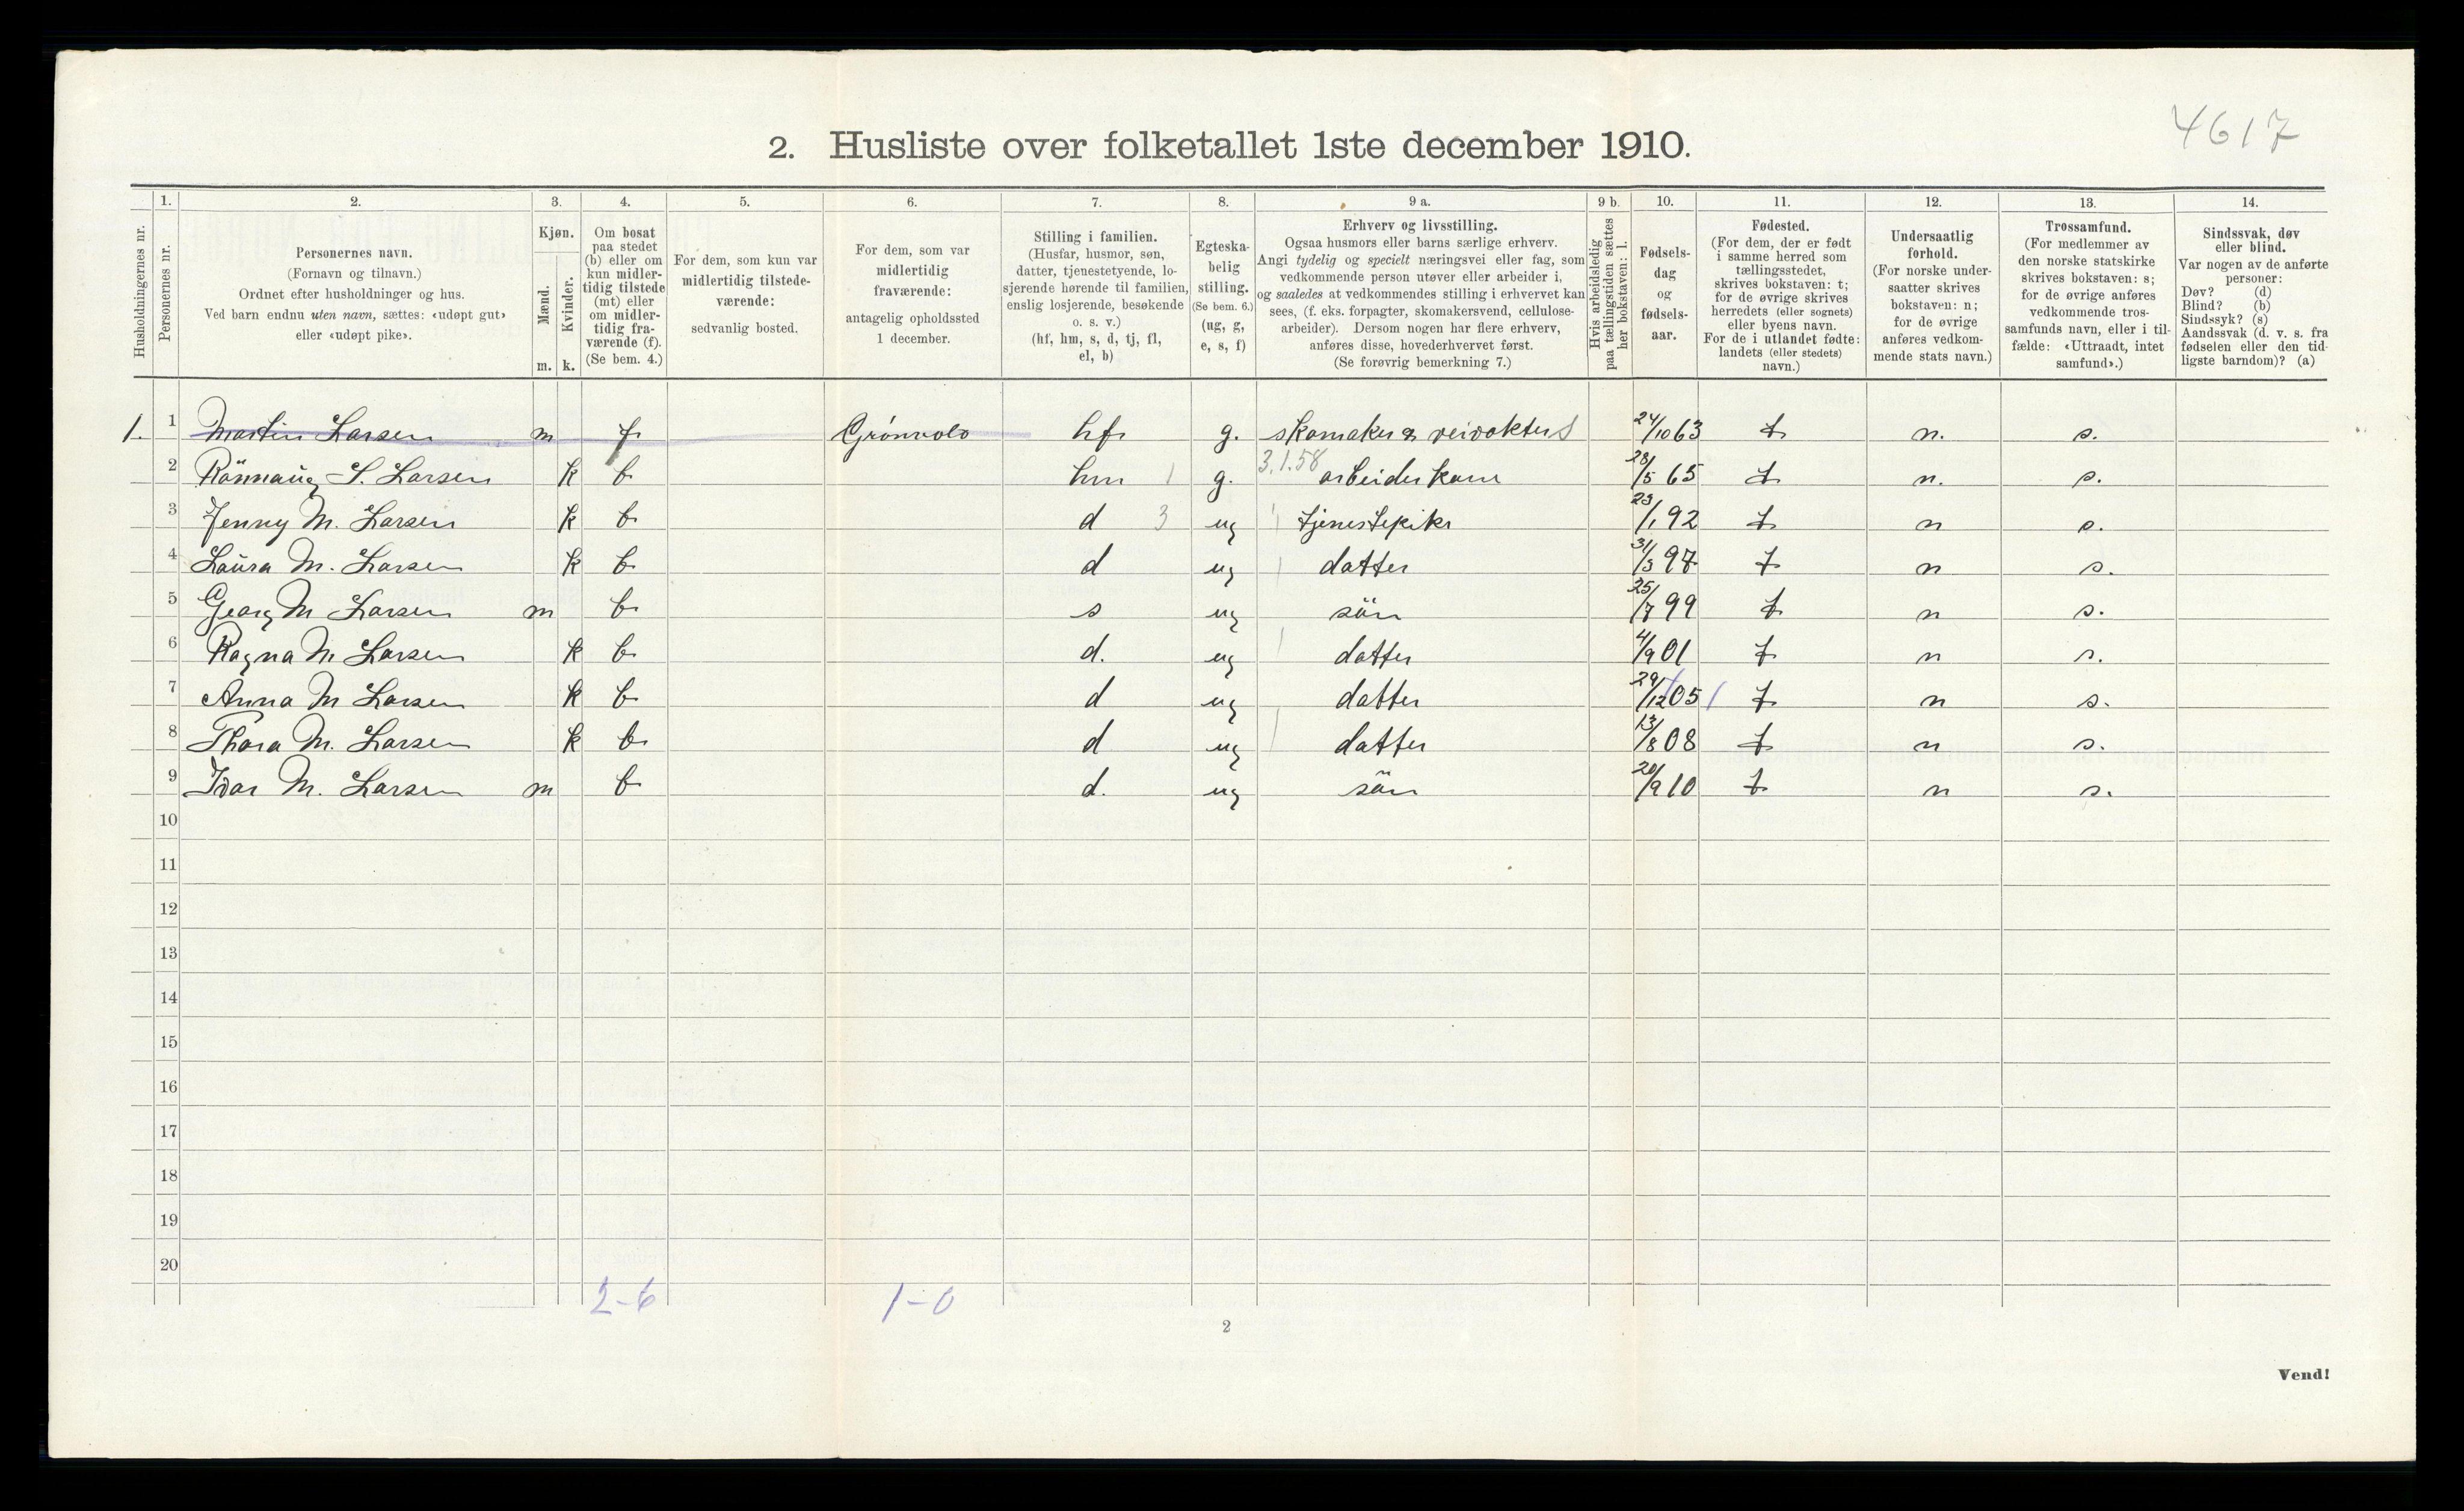 4617
2. Husliste over folketallet 1ste december 1910.
Husholdningernes nr.
1.
Personernes nr.
2.
Personernes navn.
(Fornavn og tilnavn.)
Ordnet efter husholdninger og hus.
Ved barn endnu uten navn, sættes: «udøpt gut»
eller «udøpt pike».
3.
Kjøn.
Mænd.
Kvinder.
m. k.
4.
Om bosat
paa stedet
(b) eller om
kun midler-
tidig tilstede
(mt) eller
om midler-
tidig fra-
værende (f).
(Se bem. 4.)
5.
For dem, som kun var
midlertidig tilstede-
værende:
sedvanlig bosted.
6.
For dem, som var
midlertidig
fraværende:
antagelig opholdssted
1 december.
7.
Stilling i familien.
(Husfar, husmor, søn,
datter, tjenestetyende, lo-
sjerende hørende til familien,
enslig losjerende, besøkende
o. s. v.)
(hf, hm, s, d, tj, fl,
el, b)
8.
Egteska-
belig
stilling.
(Se bem. 6.)
(ug, g,
e, s, f)
9 a.
Erhverv og livsstilling.
Ogsaa husmors eller barns særlige erhverv.
Angi tydelig og specielt næringsvei eller fag, som
vedkommende person utøver eller arbeider i,
og saaledes at vedkommendes stilling i erhvervet kan
sees, (f. eks. forpagter, skomakersvend, cellulose-
arbeider). Dersom nogen har flere erhverv,
anføres disse, hovederhvervet først.
(Se forøvrig bemerkning 7.)
9 b.
Hvis arbeidsledig
paa tællingstiden sættes
her bokstaven: l.
10.
Fødsels-
dag
og
fødsels-
aar.
11.
Fødested.
(For dem, der er født
i samme herred som
tællingsstedet,
skrives bokstaven: t;
for de øvrige skrives
herredets (eller sognets)
eller byens navn.
For de i utlandet fødte:
landets (eller stedets)
navn.)
12.
Undersaatlig
forhold.
(For norske under-
saatter skrives
bokstaven: n;
for de øvrige
anføres vedkom-
mende stats navn.)
13.
Trossamfund.
(For medlemmer av
den norske statskirke
skrives bokstaven: s;
for de øvrige anføres
vedkommende tros-
samfunds navn, eller i til-
fælde: «Uttraadt, intet
samfund».)
14.
Sindssvak, døv
eller blind.
Var nogen av de anførte
personer:
Døv? (d)
Blind? (b)
Sindssyk? (s)
Aandssvak (d. v. s. fra
fødselen eller den tid-
ligste barndom)? (a)
1. 1 Martin Larsen m f Grönvolo hf g. skomaker og veivokter 24/10 63 t n. s.
2 Rönnaug S. Larsen k b hm 1 g. 3.1.58 arbeiderkone 28/5 65 t n. s.
3 Jenny M. Larsen k b d 3 ug tjenestepike 23/1 92 t n s.
4 Laura M. Larsen k b d ug datter 31/3 97 t n s.
5 Georg M Larsen m b s ug sön 25/7 99 t n s.
6 Ragna M Larsen k b d. ug datter 4/9 01 t n s.
7 Anna M Larsen k b d ug datter 29/12 05 t n s.
8 Thora M. Larsen k b d ug datter 13/8 08 t n s.
9 Ivar M. Larsen m b d. ug sön 20/9 10 t n s.
10
11
12
13
14
15
16
17
18
19
20
2-6 1-0
2
Vend!